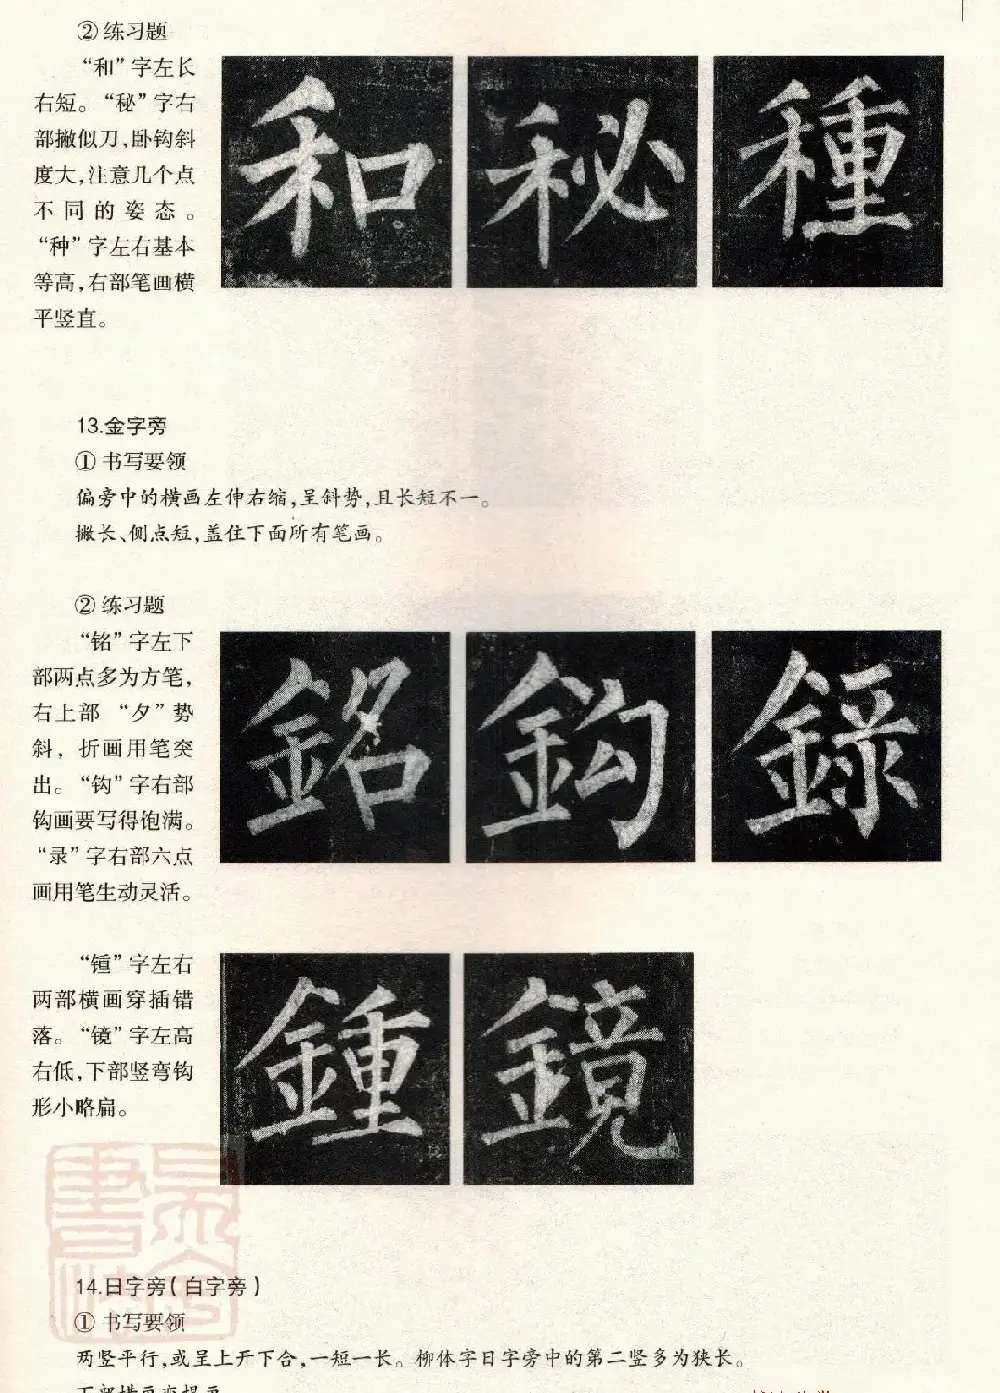 ② 练习题
“和”字左长
右短。“秘”字右
部撇似刀,卧钩斜
度大,注意几个点
不同的姿态。
“种”字左右基本
等高,右部笔画横
平竖直。
和 秘 種
13.金字旁
① 书写要领
偏旁中的横画左伸右缩,呈斜势,且长短不一。
撇长、侧点短,盖住下面所有笔画。
② 练习题
“铭”字左下
部两点多为方笔,
右上部 “夕”势
斜, 折画用笔突
出。“钩”字右部
钩画要写得饱满。
“录”字右部六点
画用笔生动灵活。
銘 鈎 録
字左右
两部横画穿插错
落。“镜”字左高
右低,下部竖弯钩
形小略扁。
鍾 鏡
14.日字旁(白字旁)
① 书写要领
两竖平行,或呈上开下合,一短一长。柳体字日字旁中的第二竖多为狭长。